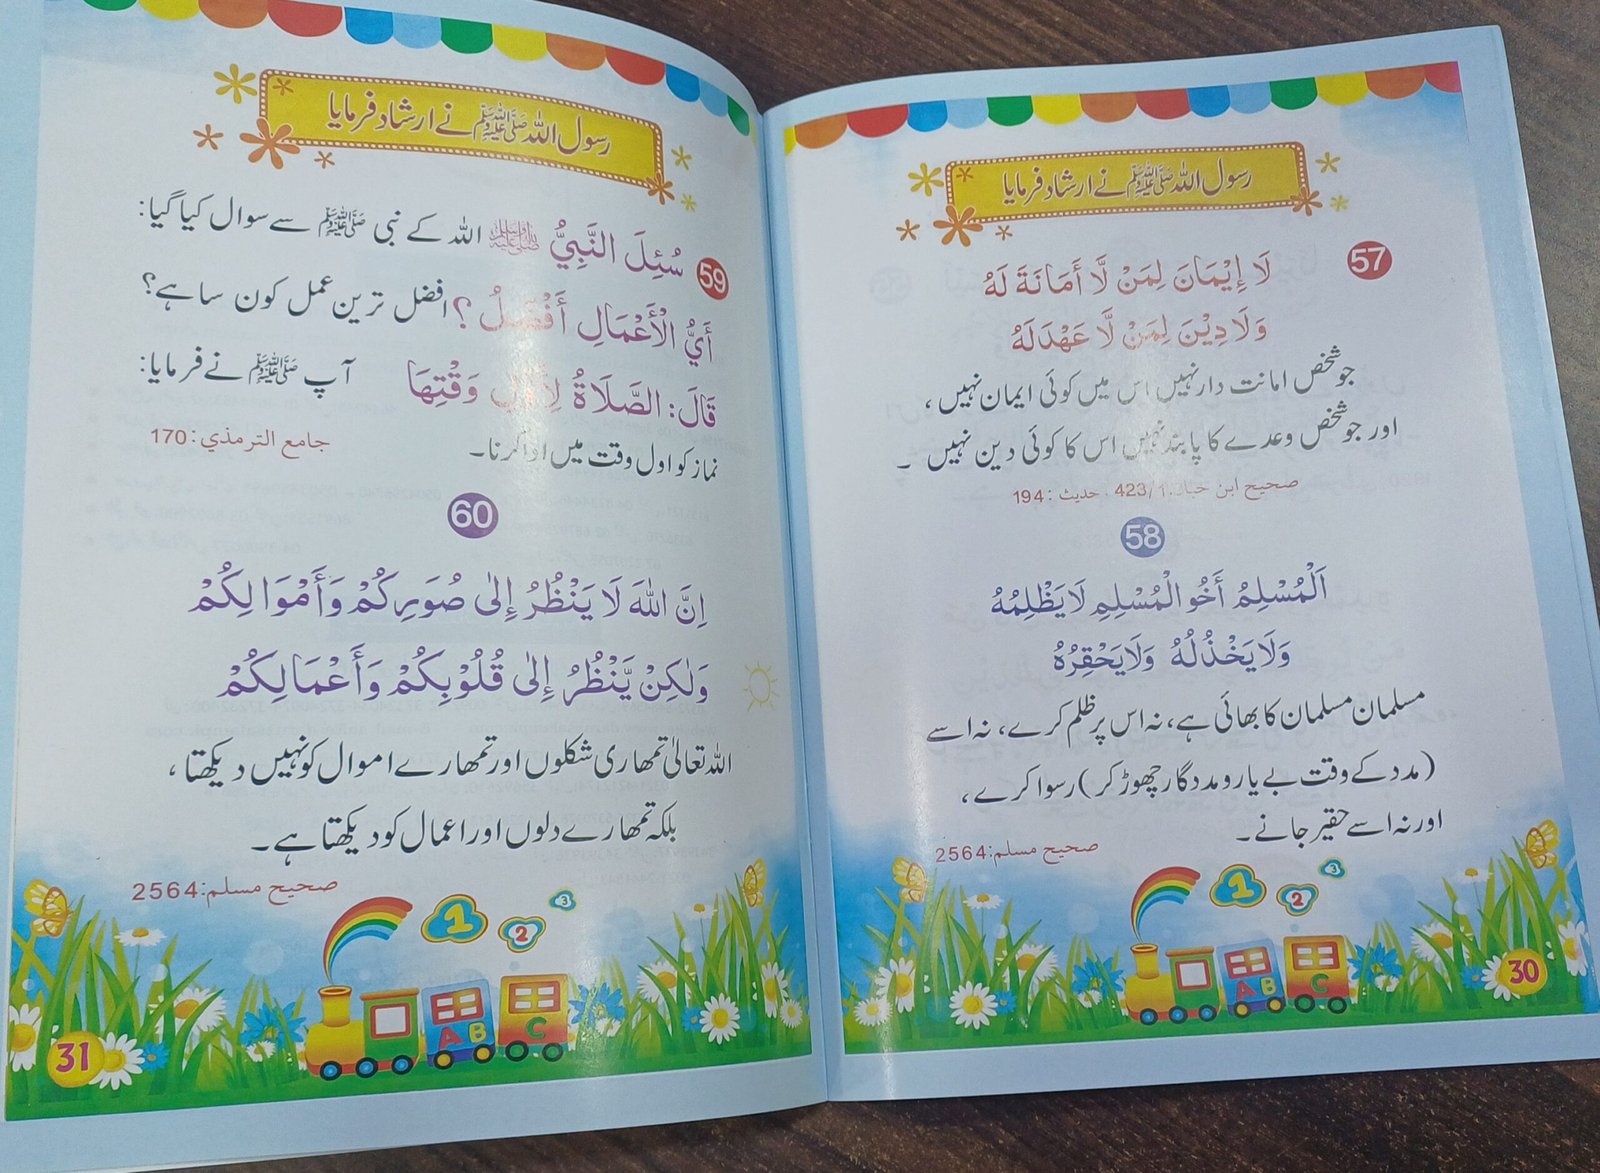 رسول اللہ ﷺ نے ارشاد فرمایا
57
لَا إِيْمَانَ لِمَنْ لَّا أَمَانَةَ لَهُ
وَلَا دِيْنَ لِمَنْ لَّا عَهْدَ لَهُ
جو شخص امانت دار نہیں اس میں کوئی ایمان نہیں،
اور جو شخص وعدے کا پابند نہیں اس کا کوئی دین نہیں ۔
صحیح ابن حبان: 423/1، حدیث: 194
58
اَلْمُسْلِمُ أَخُو الْمُسْلِمِ لَا يَظْلِمُهُ
وَلَا يَخْذُلُهُ وَلَا يَحْقِرُهُ
مسلمان مسلمان کا بھائی ہے، نہ اس پر ظلم کرے، نہ اسے
(مدد کے وقت بے یار و مددگار چھوڑ کر) رسوا کرے،
اور نہ اسے حقیر جانے۔
صحیح مسلم: 2564
1 2 3
A B C
30
رسول اللہ ﷺ نے ارشاد فرمایا
59 سُئِلَ النَّبِيُّ ﷺ اللہ کے نبی ﷺ سے سوال کیا گیا:
أَيُّ الْأَعْمَالِ أَفْضَلُ؟ افضل ترین عمل کون سا ہے؟
قَالَ: الصَّلَاةُ لِأَوَّلِ وَقْتِهَا آپ ﷺ نے فرمایا:
نماز کو اول وقت میں ادا کرنا۔ جامع الترمذي: 170
60
اِنَّ اللّٰهَ لَا يَنْظُرُ إِلٰى صُوَرِكُمْ وَأَمْوَالِكُمْ
وَلٰكِنْ يَّنْظُرُ إِلٰى قُلُوْبِكُمْ وَأَعْمَالِكُمْ
اللہ تعالیٰ تمھاری شکلوں اور تمھارے اموال کو نہیں دیکھتا،
بلکہ تمھارے دلوں اور اعمال کو دیکھتا ہے۔
صحیح مسلم: 2564
1 2 3
A B C
31